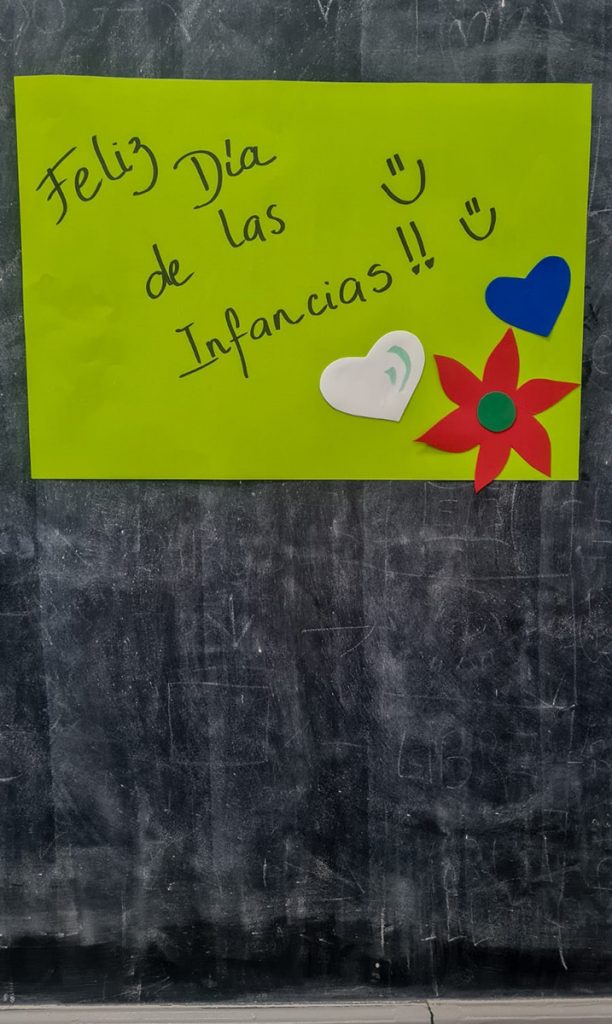 Feliz Día
de las
Infancias!!